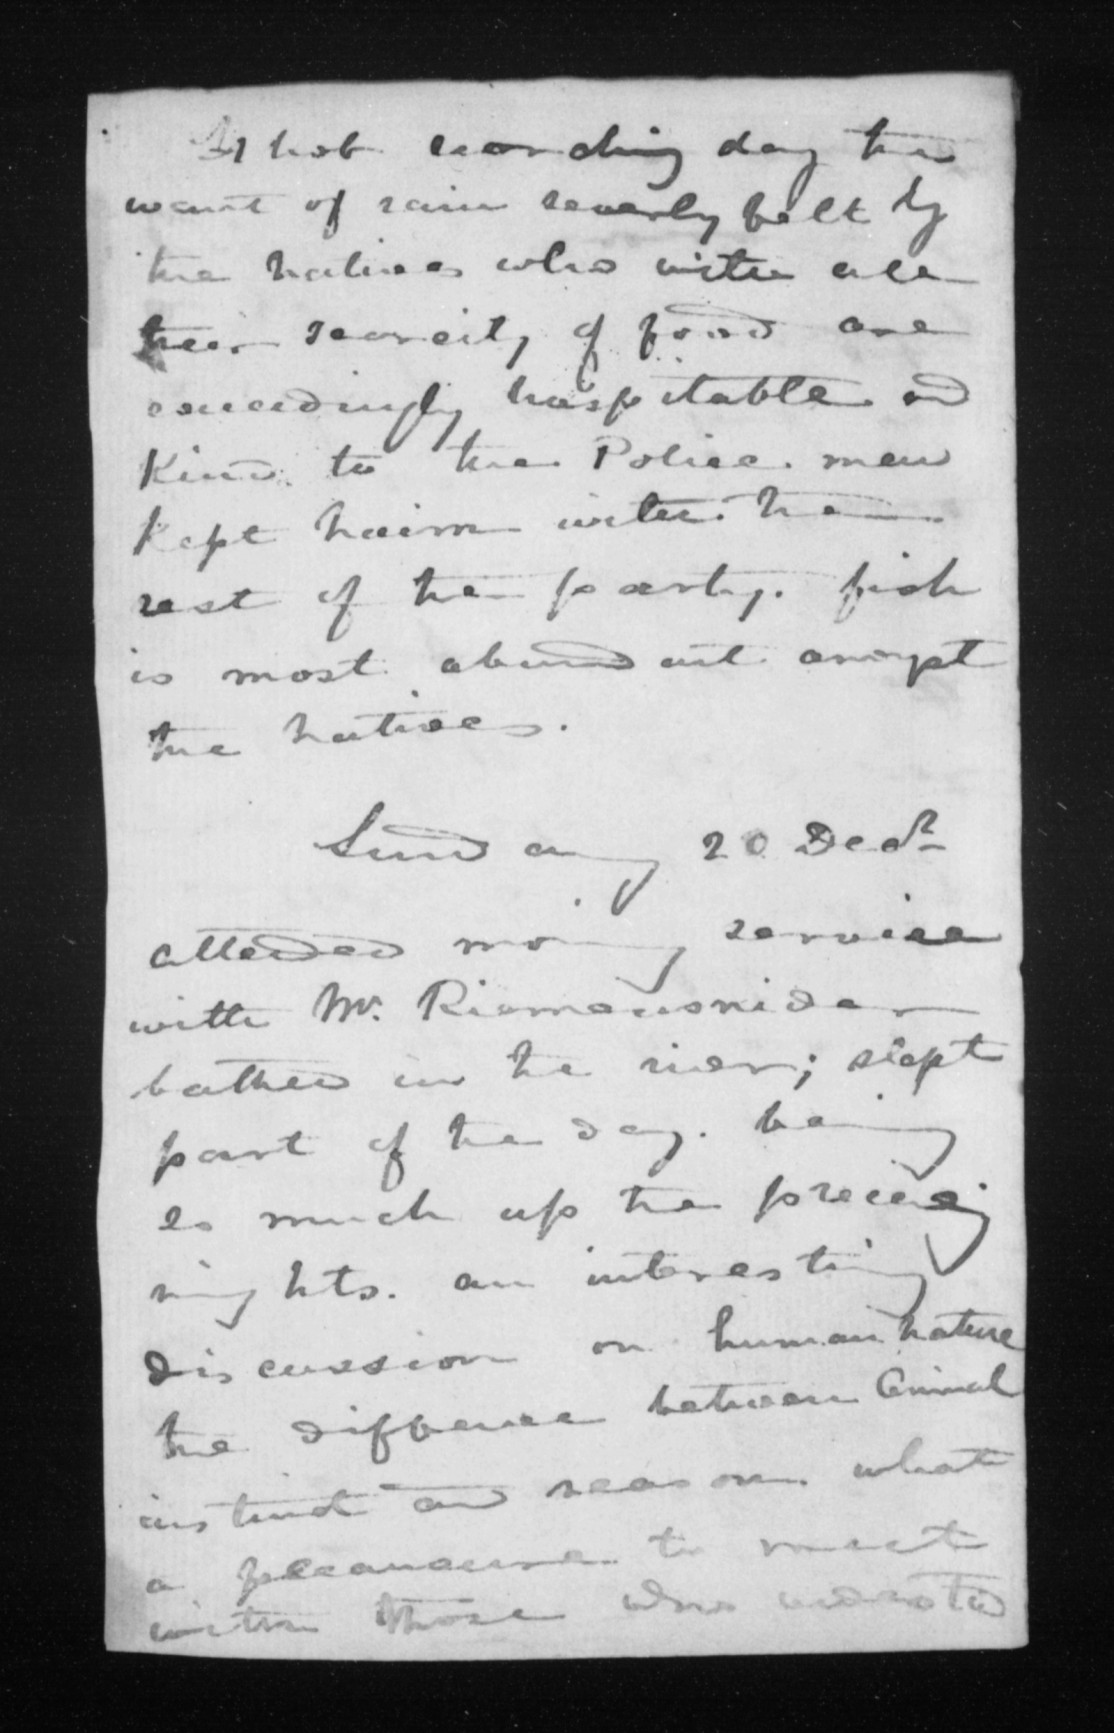 A hot scorching day the
want of rain severly felt by
the natives who with all
their scarcity of food are
exceedingly hospitable and
Kind to the Police. men
Kept haim with the
rest of the party. fish
is most abundant amgst
the natives.
Sunday 20 Decr
attended morning service
with Mr. Riemensnider
bathed in the river; slept
part of the day. being
so much up the preceeding
nights. an interesting
discussion on human nature
the diffence between Animal
instinct and reason. what
a pleasure to meet
with those who